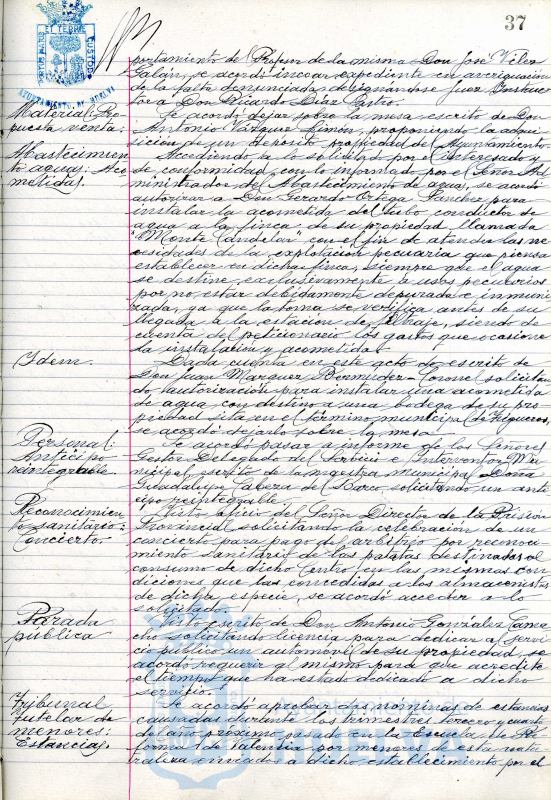 37
AYUNTAMIENTO DE HUELVA
portamiento del Profesor de la misma Don José Vélez
Galán, se acordó incoar expediente en averiguación
de la falta denunciada, designándose Juez Instruc
tor a Don Ricardo Díaz Castro.
Material: Pro-
puesta venta:
Se acordó dejar sobre la mesa escrito de Don
Antonio Vázquez Limón, proponiendo la adqui
sición de un depósito propiedad del Ayuntamiento.
Abastecimien
to aguas: Aco
metidas.
Accediendo a lo solicitado por el interesado y
de conformidad con lo informado por el Señor Ad
ministrador del Abastecimiento de agua, se acordó
autorizar a Don Gerardo Ortega Sánchez para
instalar la acometida del tubo conductor de
agua a la finca de su propiedad llamada
"Monte Candelar" con el fin de atender las ne
cesidades de la explotación pecuaria que piensa
establecer en dicha finca, siempre que el agua
se destine exclusivamente a usos pecuarios
por no estar debidamente depurada e inmuni
zada, ya que la toma se verifica antes de su
llegada a la estación de filtraje, siendo de
cuenta del peticionario los gastos que ocasione
la instalación y acometida.
Idem.
Dada cuenta en este acto de escrito de
Don Juan Márquez Bermúdez-Corone solicitan
do autorización para instalar una acometida
de agua con destino a una bodega de su pro
piedad sita en el término municipal de Trigueros,
se acordó dejarlo sobre la mesa.
Personal:
Anticipo
reintegrable.
Se acordó pasar a informe de los Señores
Gestor Delegado del Servicio e Interventor Mu
nicipal, escrito de la maestra municipal Doña
Guadalupe Cabeza de Baco, solicitando un anti
cipo reintegrable.
Reconocimien
to sanitario:
Concierto
Visto oficio del Señor Director de la Prisión
Provincial solicitando la celebración de un
concierto para pago del arbitrio por reconoci
miento sanitario de las patatas destinadas al
consumo de dicho Centro en las mismas con
diciones que las concedidas a los almacenistas
de dicha especie, se acordó acceder a lo
solicitado.
Parada
pública
Visto escrito de Don Antonio González Cama
cho solicitando licencia para dedicar al servi
cio público un automóvil de su propiedad, se
acordó requerir al mismo para que acredite
el tiempo que ha estado dedicado a dicho
servicio.
Tribunal
tutelar de
menores:
Estancias.
Se acordó aprobar dos nóminas de estancias
causadas durante los trimestres tercero y cuarto
del año próximo pasado en la Escuela de Re
forma de Valentia por menores de esta natu
raleza enviados a dicho establecimiento por el